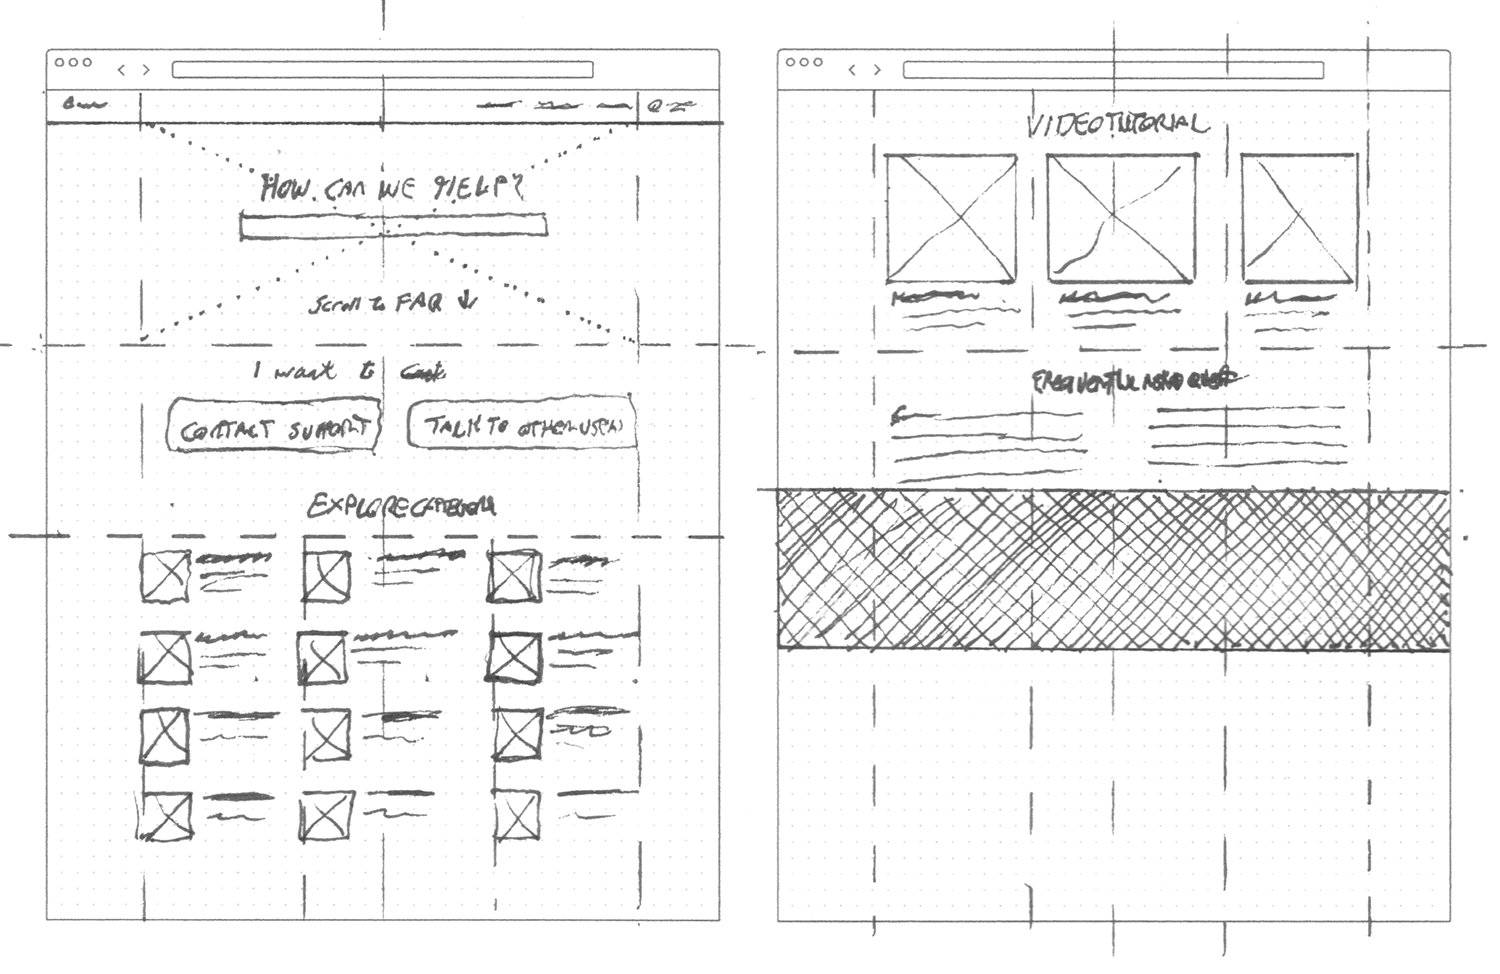 HOW CAN WE HELP?
Scroll to FAQ ↓
I want to
CONTACT SUPPORT
TALK TO OTHER USERS
EXPLORE CATEGORIES
VIDEO TUTORIAL
FREQUENTLY ASKED QUEST